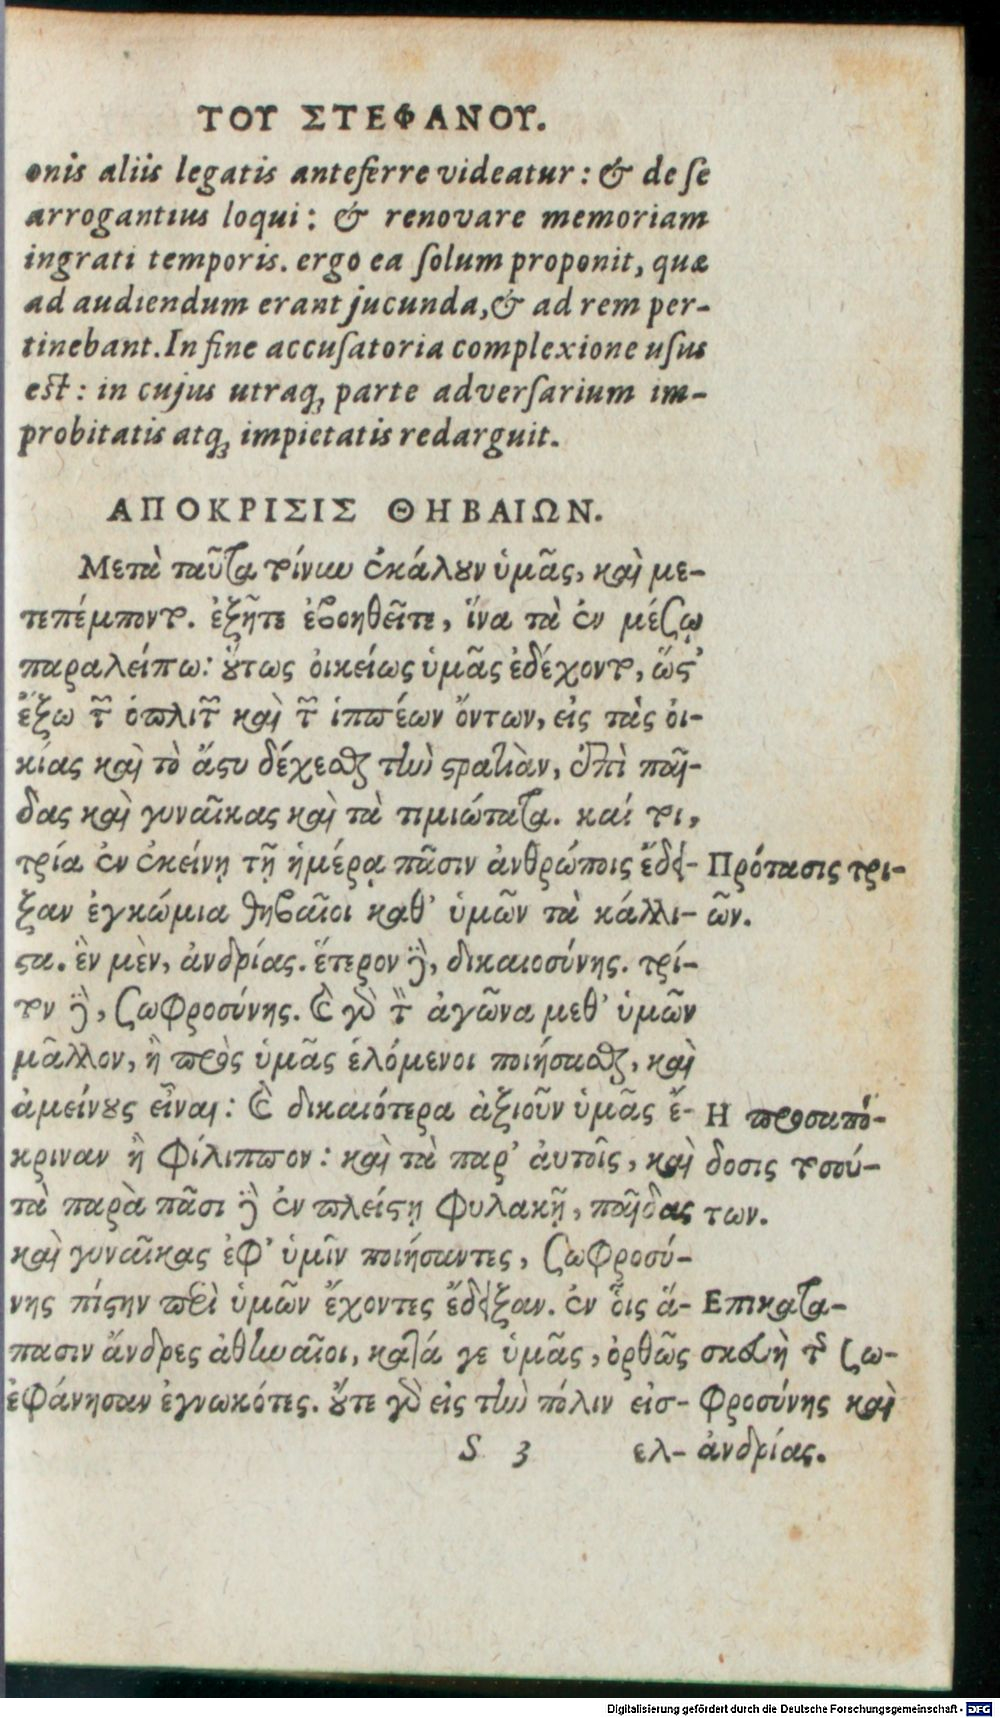 ΤΟΥ ΣΤΕΦΑΝΟΥ.
onis aliis legatis anteferre videatur: & de ſe
arrogantius loqui: & renovare memoriam
ingrati temporis. ergo ea ſolum proponit, quæ
ad audiendum erant jucunda, & ad rem per-
tinebant. In fine accuſatoria complexione uſus
eſt: in cujus utraq; parte adverſarium im-
probitatis atq; impietatis redarguit.
ΑΠΟΚΡΙΣΙΣ ΘΗΒΑΙΩΝ.
Μετὰ ταῦτα τοίνυν ἐκάλουν ὑμᾶς, καὶ με-
τεπέμποντο. ἐξῆτε ἐβοηθεῖτε, ἵνα τὰ ἐν μέσῳ
παραλείπω: οὕτως οἰκείως ὑμᾶς ἐδέχοντο, ὥς
ἔξω τῶν ὁπλιτῶν καὶ τῶν ἱππέων ὄντων, εἰς τὰς οἰ-
κίας καὶ τὸ ἄστυ δέχεσθαι τὴν στρατιὰν, ἐπὶ παῖ-
δας καὶ γυναῖκας καὶ τὰ τιμιώτατα. καί τοι,
τρία ἐν ἐκείνῃ τῇ ἡμέρᾳ πᾶσιν ἀνθρώποις ἔδει-
ξαν ἐγκώμια θηβαῖοι καθ' ὑμῶν τὰ κάλλι-
στα. ἓν μὲν, ἀνδρίας. ἕτερον δὲ, δικαιοσύνης. τρί-
τον δὲ, σωφροσύνης. καὶ γὰρ τὸν ἀγῶνα μεθ' ὑμῶν
μᾶλλον, ἢ πρὸς ὑμᾶς ἑλόμενοι ποιήσασθαι, καὶ
ἀμείνους εἶναι: καὶ δικαιότερα ἀξιοῦν ὑμᾶς ἔ-
κριναν ἢ Φίλιππον: καὶ τὰ παρ' ἀυτοῖς, καὶ
τὰ παρὰ πᾶσι δὲ ἐν πλείστῃ φυλακῇ, παῖδας
καὶ γυναῖκας ἐφ' ὑμῖν ποιήσαντες, σωφροσύ-
νης πίστιν περὶ ὑμῶν ἔχοντες ἔδειξαν. ἐν οἷς ἅ-
πασιν ἄνδρες ἀθηναῖοι, κατά γε ὑμᾶς, ὀρθῶς
ἐφάνησαν ἐγνωκότες. οὔτε γὰρ εἰς τὴν πόλιν εἰσ-
S 3 ελ-
Πρότασις τρι-
ῶν.
Η προσαπό-
δοσις τούτων.
Επικατα-
σκευὴ τῆς σω-
φροσύνης καὶ
ἀνδρίας.
Digitalisierung gefördert durch die Deutsche Forschungsgemeinschaft - DFG